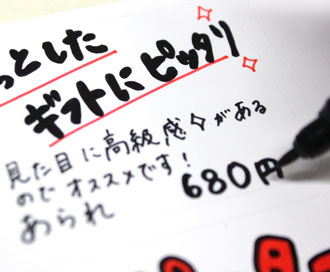 っとした
ギフトにピッタリ
見た目に高級感がある
のでオススメです!
あられ
680円